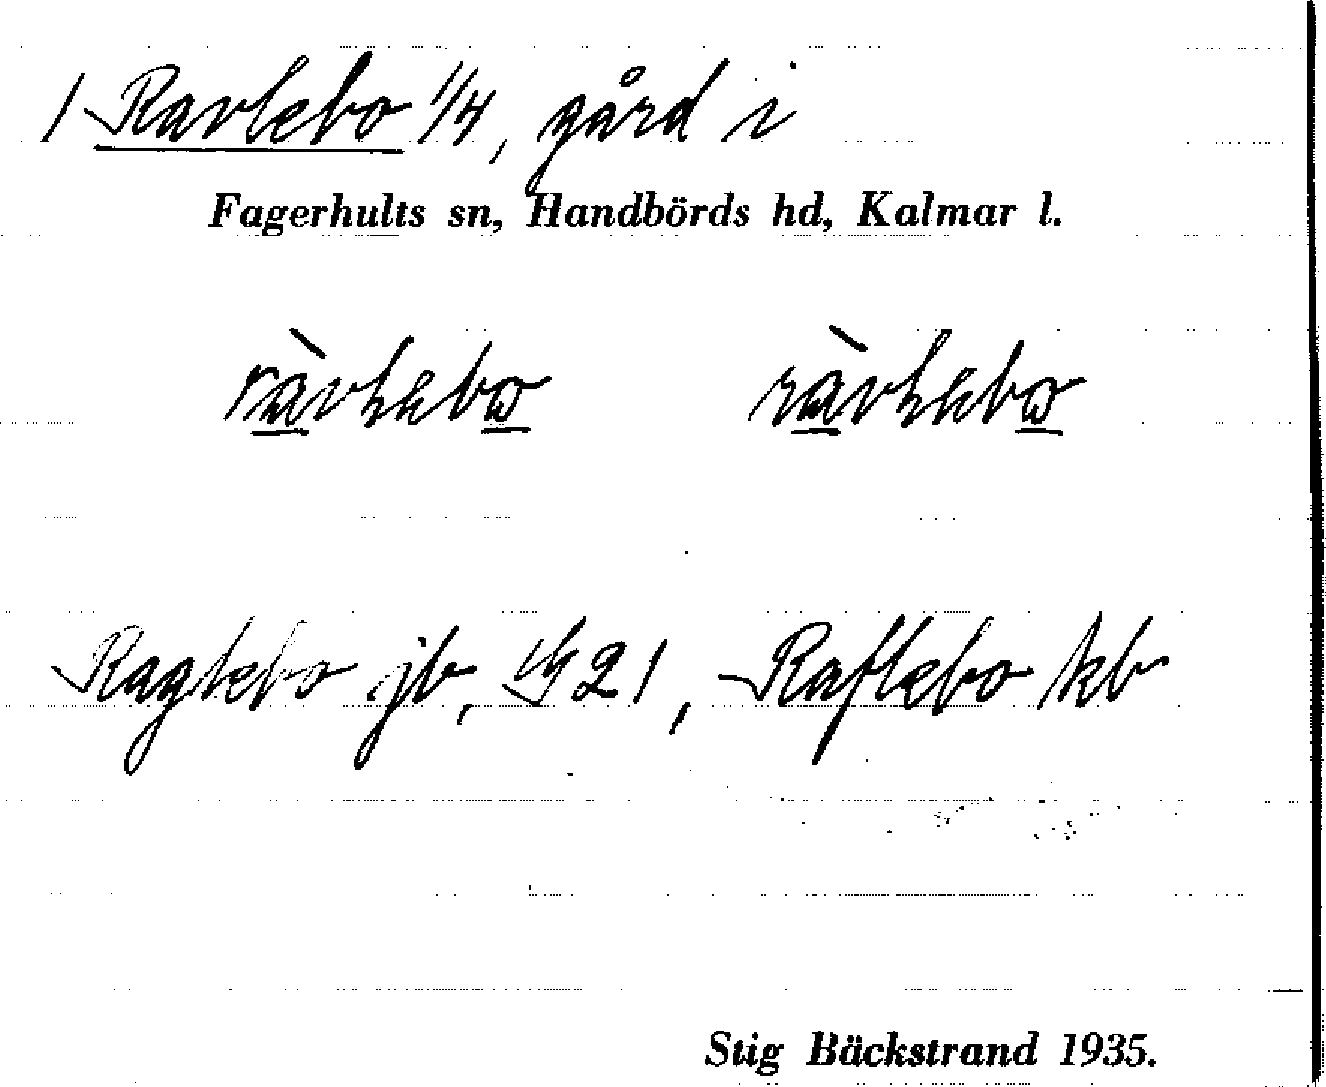 1 Ravlebo 1/4, gård i
Fagerhults sn, Handbörds hd, Kalmar l.
Raglebo jb, 21, Raflebo kb
Stig Bäckstrand 1935.